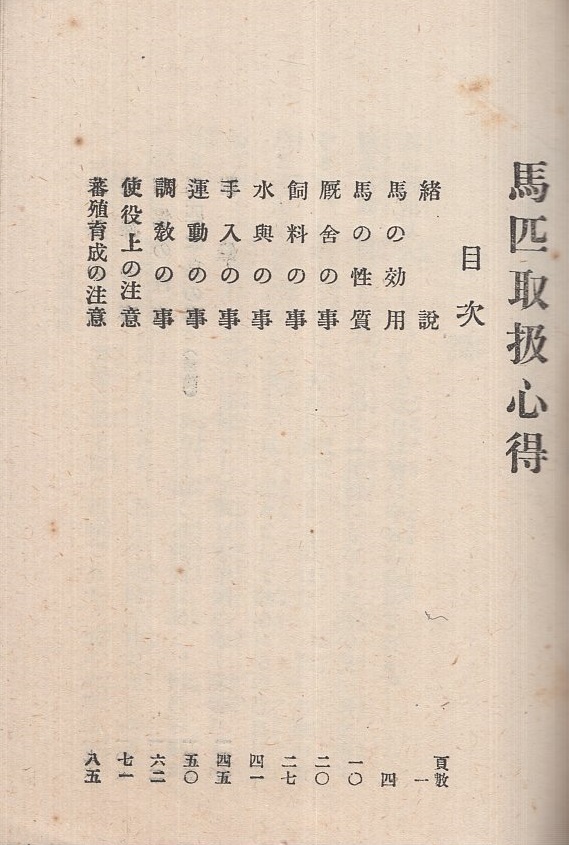 馬匹取扱心得
目次
頁数
緒説 一
馬の効用 四
馬の性質 一〇
厩舎の事 二〇
飼料の事 二七
水與の事 四一
手入の事 四五
運動の事 五〇
調教の事 六二
使役上の注意 七一
蕃殖育成の注意 八五